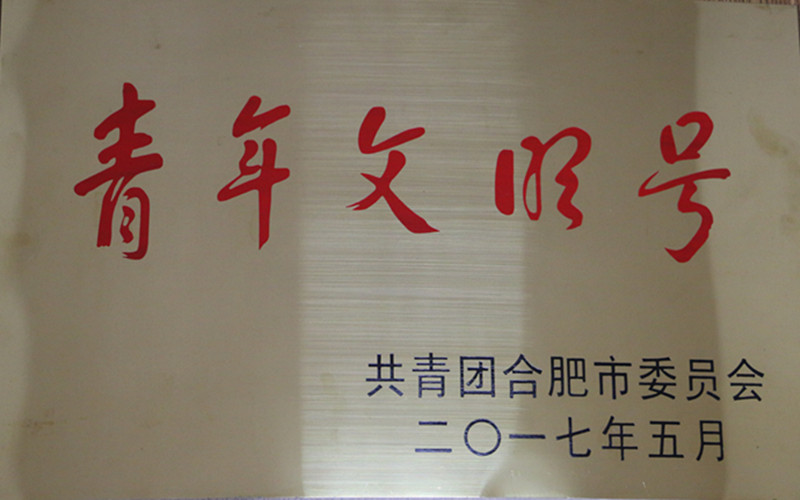 青年文明号
共青团合肥市委员会
二〇一七年五月